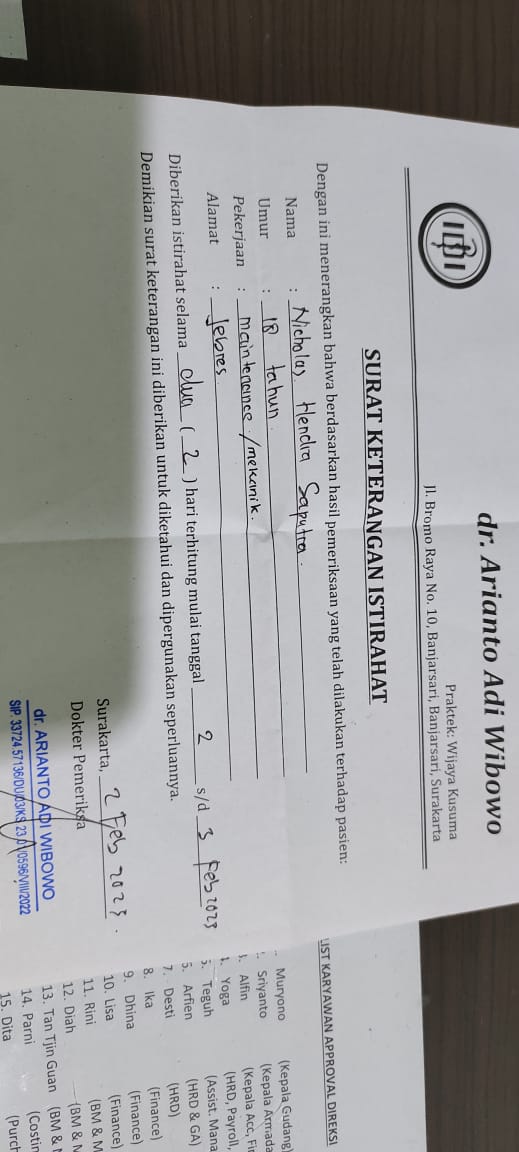 dr. Arianto Adi Wibowo
Praktek: Wijaya Kusuma
Jl. Bromo Raya No. 10, Banjarsari, Banjarsari, Surakarta
SURAT KETERANGAN ISTIRAHAT
Dengan ini menerangkan bahwa berdasarkan hasil pemeriksaan yang telah dilakukan terhadap pasien:
Nama : Nicholas Hendra Saputra.
Umur : 18 tahun.
Pekerjaan : maintenance / mekanik.
Alamat : Jebres
Diberikan istirahat selama dua ( 2 ) hari terhitung mulai tanggal 2 s/d 3 Feb 2023
Demikian surat keterangan ini diberikan untuk diketahui dan dipergunakan seperluannya.
Surakarta, 2 Feb 2023.
Dokter Pemeriksa
dr. ARIANTO ADI WIBOWO
LIST KARYAWAN APPROVAL DIREKSI
Muryono (Kepala Gudang)
Sriyanto (Kepala Armada
Alfin (Kepala Acc, Fi
Yoga (HRD, Payroll,
Teguh (Assist. Mana
Arfien (HRD & GA)
7. Desti (HRD)
8. Ika (Finance)
9. Dhina (Finance)
10. Lisa (Finance)
11. Rini (BM & M
12. Diah (BM & M
13. Tan Tjin Guan (BM &
14. Parni (Costin
15. Dita (Purch